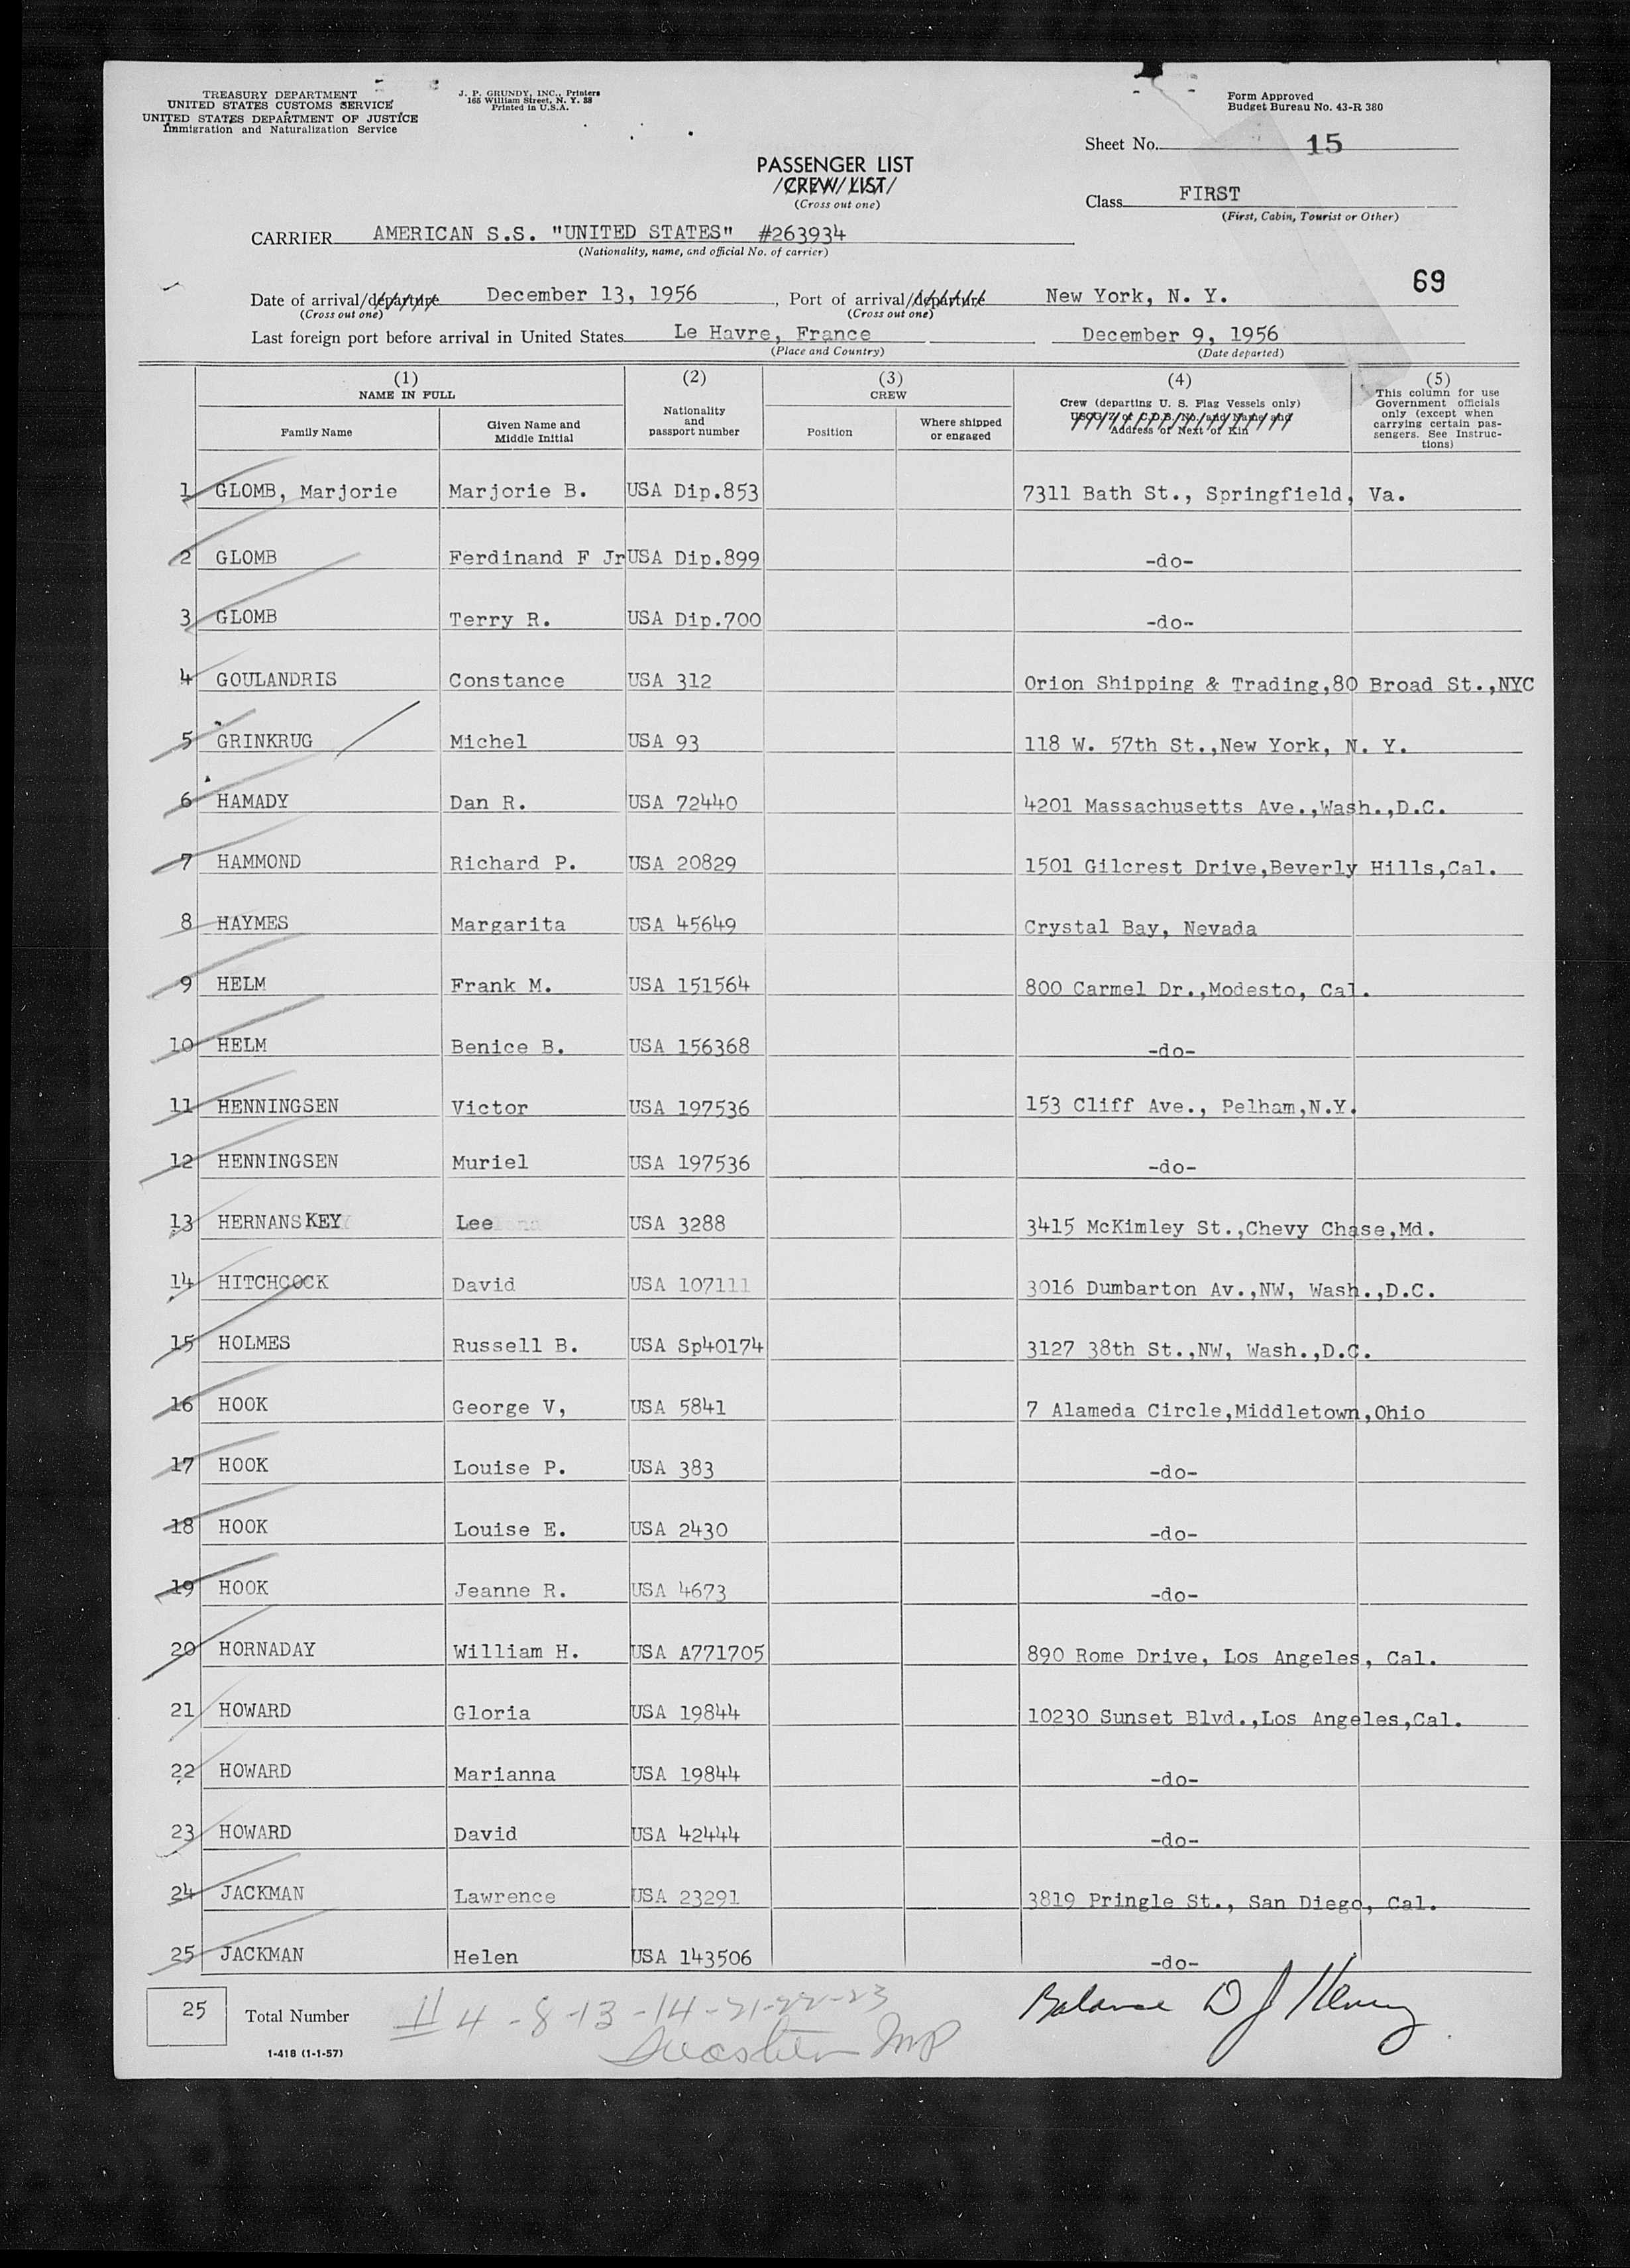 TREASURY DEPARTMENT
UNITED STATES CUSTOMS SERVICE
UNITED STATES DEPARTMENT OF JUSTICE
Immigration and Naturalization Service
J. P. GRUNDY, INC., Printers
165 William Street, N. Y. 38
Printed in U.S.A.
Form Approved
Budget Bureau No. 43-R 380
Sheet No. 15
PASSENGER LIST
/CREW/LIST/
(Cross out one)
Class FIRST
(First, Cabin, Tourist or Other)
CARRIER AMERICAN S.S. "UNITED STATES" #263934
(Nationality, name, and official No. of carrier)
69
Date of arrival/departure December 13, 1956, Port of arrival/departure New York, N. Y.
(Cross out one) (Cross out one)
Last foreign port before arrival in United States Le Havre, France December 9, 1956
(Place and Country) (Date departed)
(1) NAME IN FULL
Family Name
Given Name and Middle Initial
(2)
Nationality and passport number
(3) CREW
Position
Where shipped or engaged
(4)
Crew (departing U. S. Flag Vessels only)
USCG Z or C.D.B. No. and Name and
Address of Next of Kin
(5)
This column for use Government officials only (except when carrying certain passengers. See Instructions)
1 GLOMB, Marjorie Marjorie B. USA Dip.853 7311 Bath St., Springfield, Va.
2 GLOMB Ferdinand F Jr USA Dip.899 -do-
3 GLOMB Terry R. USA Dip.700 -do-
4 GOULANDRIS Constance USA 312 Orion Shipping & Trading,80 Broad St.,NYC
5 GRINKRUG Michel USA 93 118 W. 57th St.,New York, N. Y.
6 HAMADY Dan R. USA 72440 4201 Massachusetts Ave.,Wash.,D.C.
7 HAMMOND Richard P. USA 20829 1501 Gilcrest Drive,Beverly Hills,Cal.
8 HAYMES Margarita USA 45649 Crystal Bay, Nevada
9 HELM Frank M. USA 151564 800 Carmel Dr.,Modesto, Cal.
10 HELM Benice B. USA 156368 -do-
11 HENNINGSEN Victor USA 197536 153 Cliff Ave., Pelham,N.Y.
12 HENNINGSEN Muriel USA 197536 -do-
13 HERNANSKEY Lee USA 3288 3415 McKimley St.,Chevy Chase,Md.
14 HITCHCOCK David USA 107111 3016 Dumbarton Av.,NW, Wash.,D.C.
15 HOLMES Russell B. USA Sp40174 3127 38th St.,NW, Wash.,D.C.
16 HOOK George V, USA 5841 7 Alameda Circle,Middletown,Ohio
17 HOOK Louise P. USA 383 -do-
18 HOOK Louise E. USA 2430 -do-
19 HOOK Jeanne R. USA 4673 -do-
20 HORNADAY William H. USA A771705 890 Rome Drive, Los Angeles, Cal.
21 HOWARD Gloria USA 19844 10230 Sunset Blvd.,Los Angeles,Cal.
22 HOWARD Marianna USA 19844 -do-
23 HOWARD David USA 42444 -do-
24 JACKMAN Lawrence USA 23291 3819 Pringle St., San Diego, Cal.
25 JACKMAN Helen USA 143506 -do-
25 Total Number
4-8-13-14-21-22-23
Balance D J
1-418 (1-1-57)